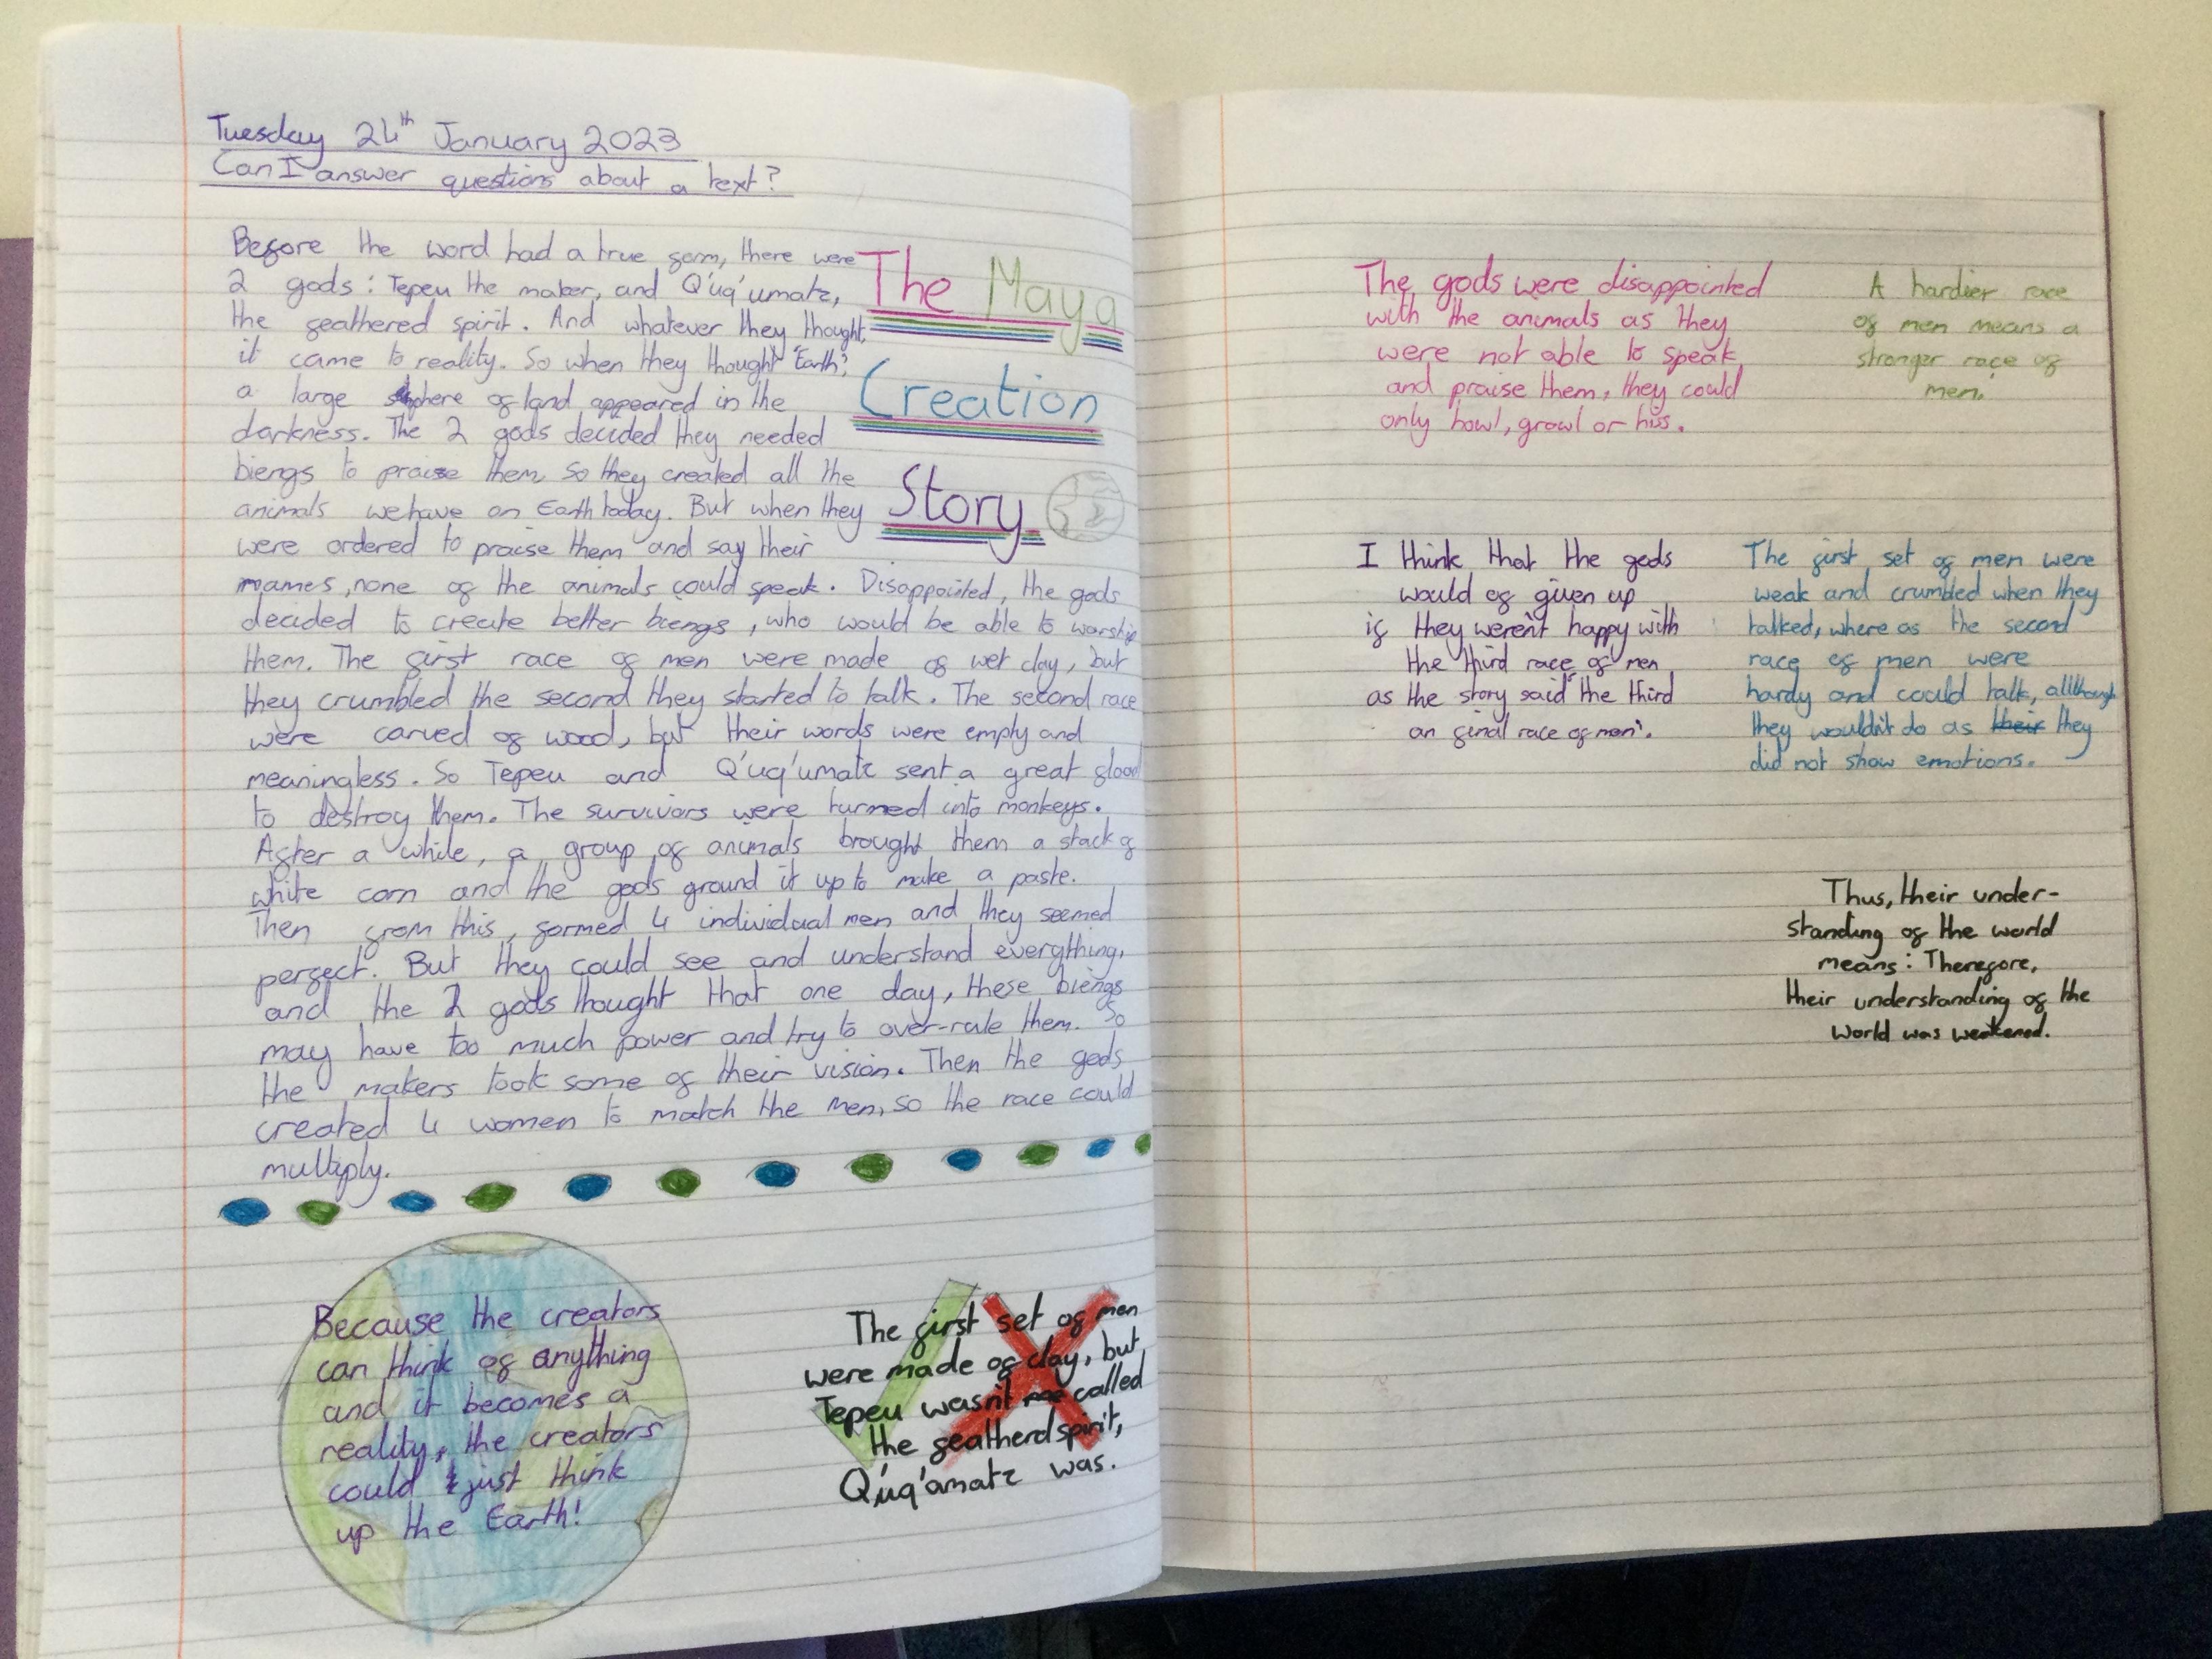 Tuesday 24th January 2023
Can I answer questions about a text?
The Maya
Creation
Story
Before the word had a true form, there were
2 gods : Tepeu the maker, and Q'uq'umatz,
the feathered spirit. And whatever they thought,
it came to reality. So when they thought 'Earth',
a large sphere of land appeared in the
darkness. The 2 gods decided they needed
biengs to praise them. So they created all the
animals we have on Earth today. But when they
were ordered to praise them and say their
names, none of the animals could speak. Disappointed, the gods
decided to create better biengs, who would be able to worship
them. The first race of men were made of wet clay, but
they crumbled the second they started to talk. The second race
were carved of wood, but their words were empty and
meaningless. So Tepeu and Q'uq'umatz sent a great flood
to destroy them. The survivors were turned into monkeys.
After a while, a group of animals brought them a stack of
white corn and the gods ground it up to make a paste.
Then from this, formed 4 individual men and they seemed
perfect. But they could see and understand everything,
and the 2 gods thought that one day, these biengs
may have too much power and try to over-rule them. So
the makers took some of their vision. Then the gods
created 4 women to match the men, so the race could
multiply.
Because the creators
can think of anything
and it becomes a
reality, the creators
could just think
up the Earth!
The first set of men
were made of clay, but
Tepeu wasn't called
the featherd spirit,
Q'uq'amatz was.
The gods were disappointed
with the animals as they
were not able to speak
and praise them, they could
only howl, growl or hiss.
A hardier race
of men means a
stronger race of
men.
I think that the gods
would of given up
if they weren't happy with
the third race of men
as the story said 'the third
an final race of men'.
The first set of men were
weak and crumbled when they
talked, where as the second
race of men were
hardy and could talk, allthough
they wouldn't do as their they
did not show emotions.
Thus, their under-
standing of the world
means : Therefore,
their understanding of the
world was weakened.